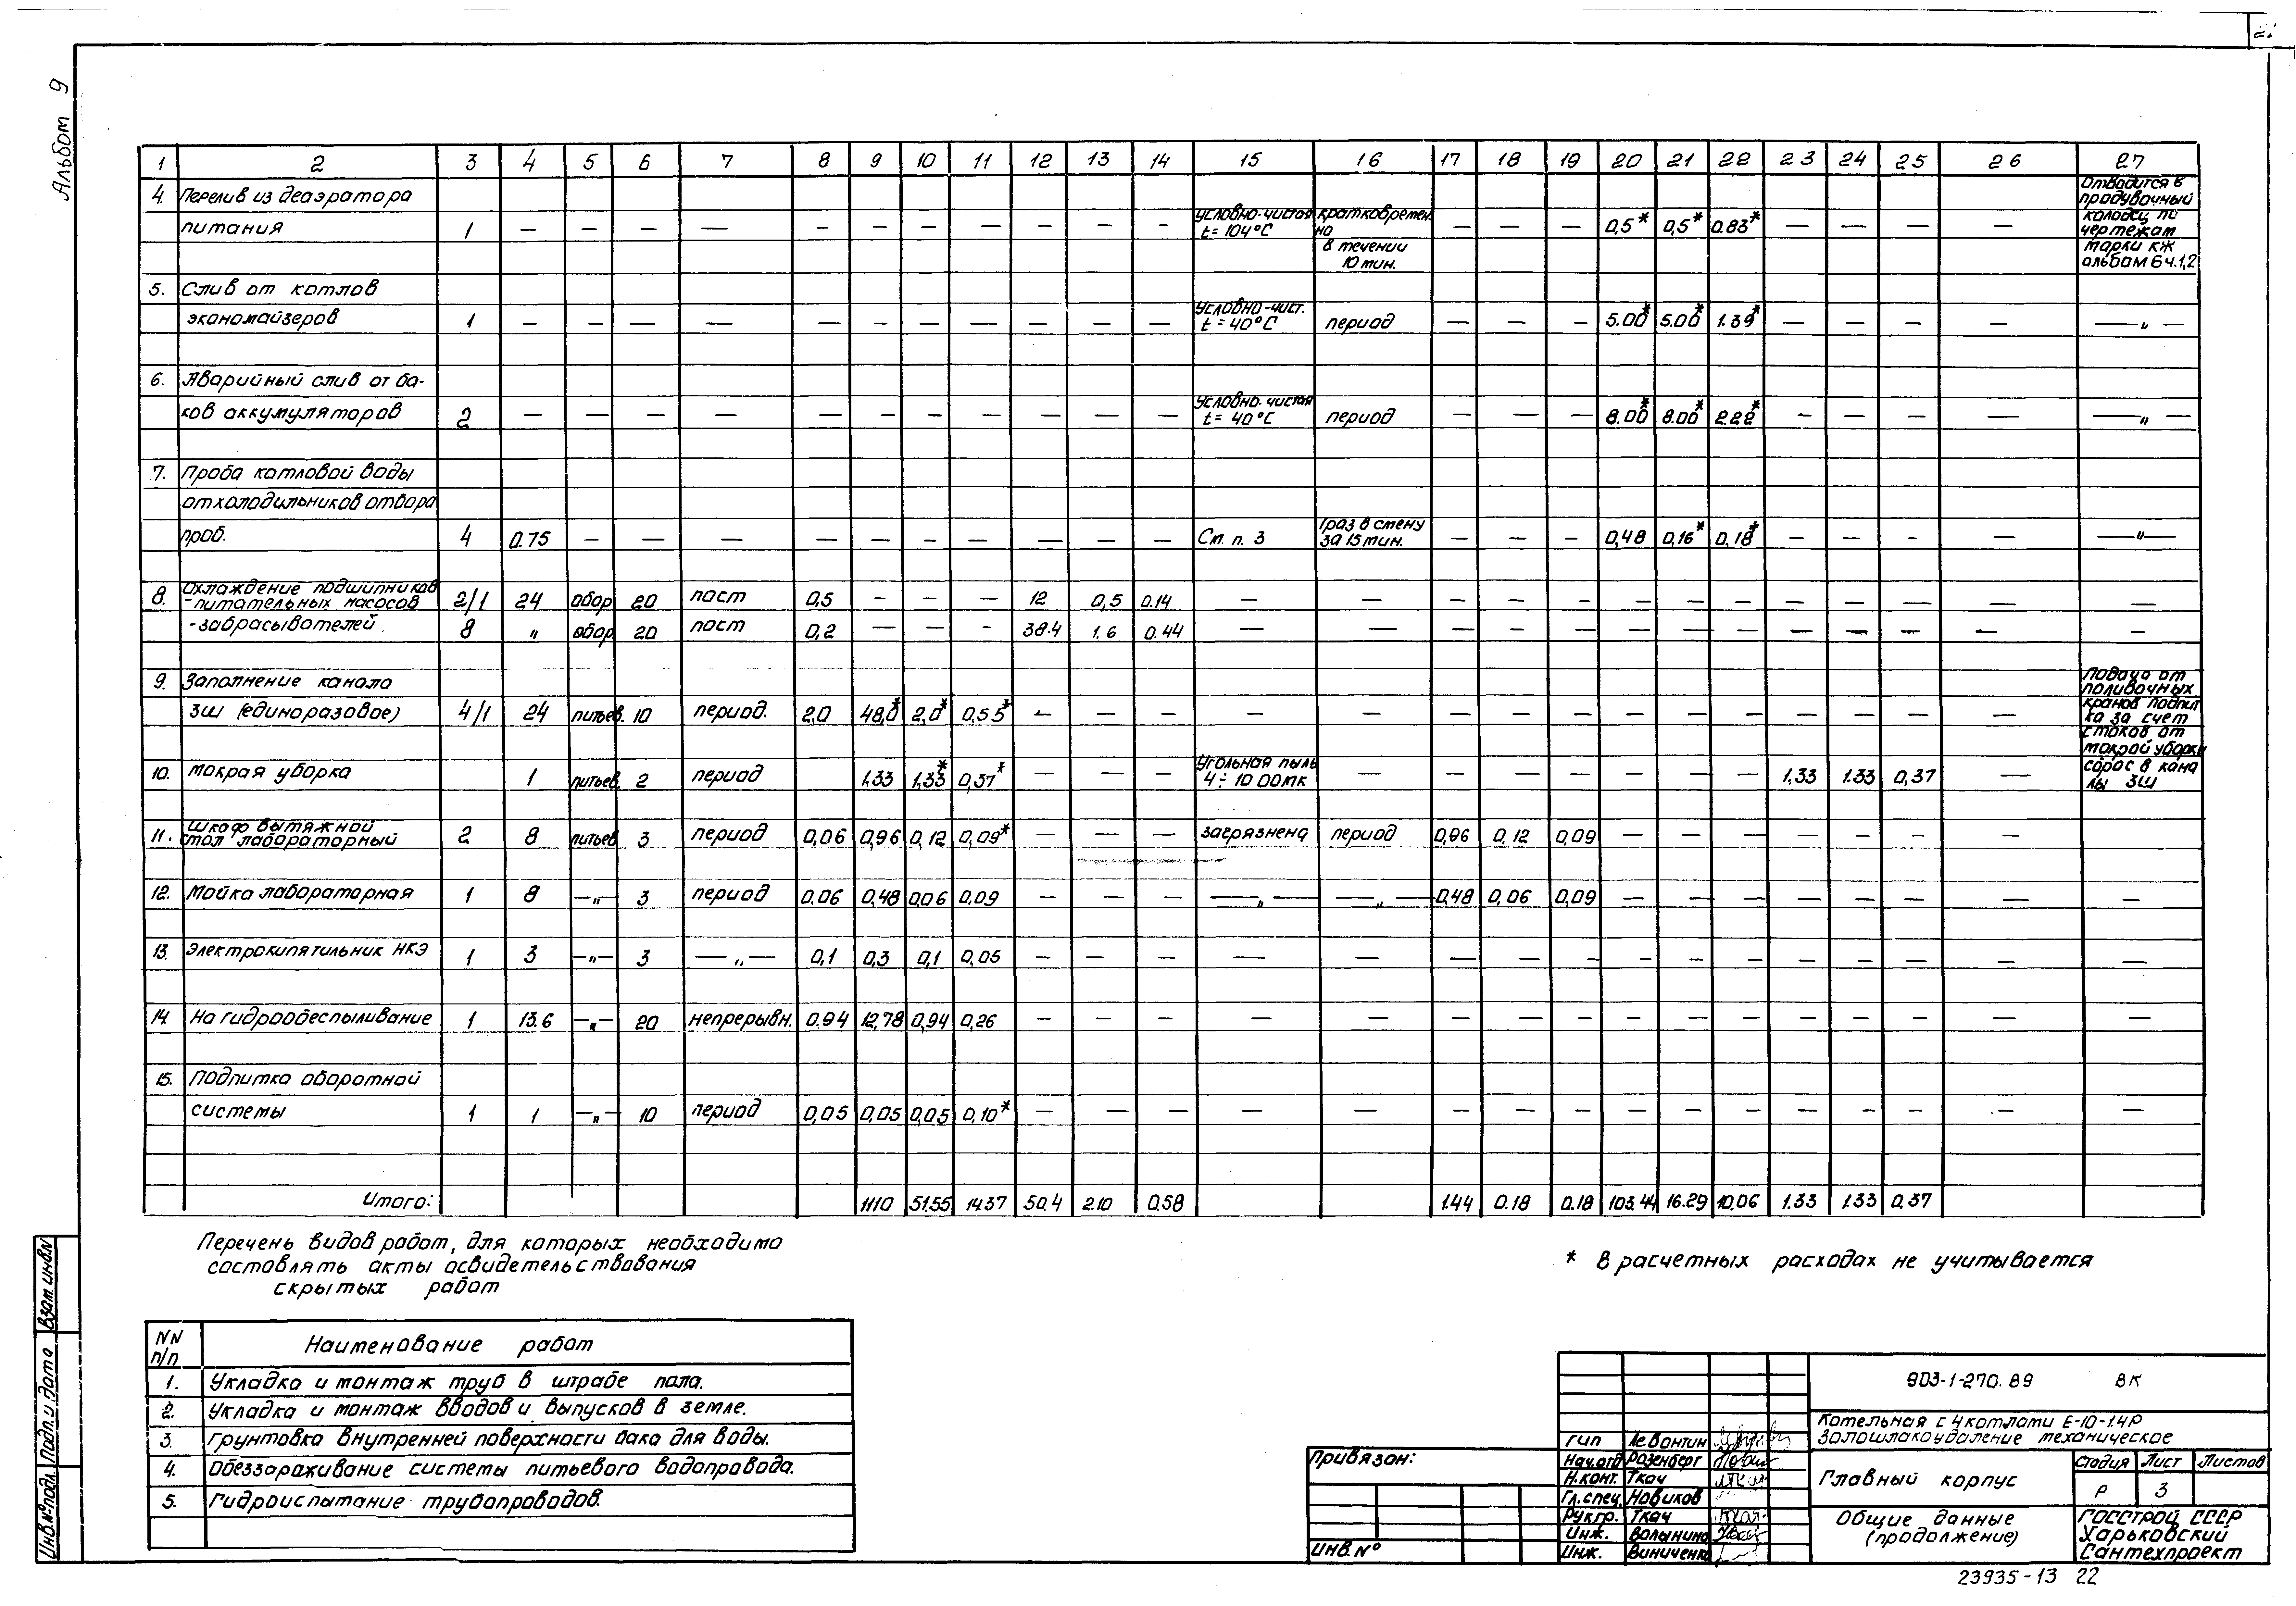 Альбом 9
21
1 2 3 4 5 6 7 8 9 10 11 12 13 14 15 16 17 18 19 20 21 22 23 24 25 26 27
4. Перелив из деаэратора
питания 1 — — — — — — — — — — — условно-чистая t=104°С кратковремен но в течении 10 мин. — — — 0,5* 0,5* 0.83* — — — — Отводится в продувочный колодец по чертежам марки КЖ альбом 6 ч.1,2
5. Слив от котлов
экономайзеров 1 — — — — — — — — — — — Условно-чист. t=40°С период — — — 5.00* 5.00* 1.39* — — — — — „ —
6. Аварийный слив от ба-
ков аккумуляторов 2 — — — — — — — — — — — Условно-чистая t=40°С период — — — 8.00* 8.00* 2.22* — — — — — „ —
7. Проба котловой воды
от холодильников отбора
проб. 4 0.75 — — — — — — — — — — См. п. 3 1раз в смену за 15 мин. — — — 0,48 0,16* 0,18* — — — — — „ —
8. Охлаждение подшипников
-питательных насосов 2/1 24 обор 20 пост 0,5 — — — 12 0,5 0.14 — — — — — — — — — — — — —
-забрасывателей 8 „ обор 20 пост 0,2 — — - 38.4 1.6 0.44 — — — — — — — — — — — — —
9. Заполнение канала
ЗШ (единоразовое) 4/1 24 питьев. 10 период. 2,0 48,0* 2,0* 0,55* — — — — — — — — — — — — — — — Подача от поливочных кранов подпит ка за счет стоков от мокрой уборки
10. Мокрая уборка 1 питьев 2 период 1.33 1,33* 0,37* — — — Угольная пыль 4÷1000мк — — — — — — — 1,33 1.33 0,37 — сброс в кана лы ЗШ
11. Шкаф вытяжной
стол лабораторный 2 8 питьев 3 период 0,06 0,96 0,12 0,09* — — — загрязнена период 0,96 0,12 0,09 — — — — — — —
12. Мойка лабораторная 1 8 — „ — 3 период 0,06 0,48 0,06 0,09 — — — — „ — — „ — 0,48 0,06 0,09 — — — — — — — —
13. Электрокипятильник НКЭ 1 3 — „ — 3 — „ — 0,1 0,3 0,1 0,05 — — — — — — — — — — — — — — — —
14. На гидрообеспыливание 1 13.6 — „ — 20 непрерывн. 0.94 12,78 0,94 0,26 — — — — — — — — — — — — — — — —
15. Подпитка оборотной
системы 1 1 — „ — 10 период 0,05 0,05 0,05 0,10* — — — — — — — — — — — — — — — —
Итого: 1110 51.55 14.37 50.4 2.10 0.58 1.44 0.18 0.18 103.44 16.29 10.06 1.33 1.33 0,37
Перечень видов работ, для которых необходимо
составлять акты освидетельствования
скрытых работ
* В расчетных расходах не учитывается
NN п/п Наименование работ
1. Укладка и монтаж труб в штрабе пола.
2. Укладка и монтаж вводов и выпусков в земле.
3. Грунтовка внутренней поверхности бака для воды.
4. Обеззараживание системы питьевого водопровода.
5. Гидроиспытание трубопроводов.
Инв.№подл. Подп. и дата Взам.инв.N
Привязан:
Инв.№
ГИП Левонтин
Нач.отд Розенберг
Н.конт. Ткач
Гл.спец. Новиков
Рук.гр. Ткач
Инж. Волынина
Инж. Виниченко
903-1-270.89 ВК
Котельная с 4 котлами Е-10-1.4Р
Золошлакоудаление механическое
Главный корпус
Стадия Лист Листов
Р 3
Общие данные
(продолжение)
Госстрой СССР
Харьковский
Сантехпроект
23935-13 22